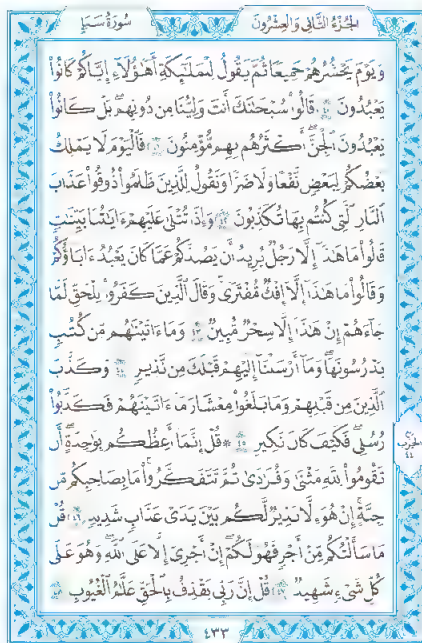 الجزء الثاني والعشرون
سورة سبإ
وَيَوْمَ يَحْشُرُهُمْ جَمِيعًا ثُمَّ يَقُولُ لِلْمَلَـٰٓئِكَةِ أَهَـٰٓؤُلَآءِ إِيَّاكُمْ كَانُوا۟
يَعْبُدُونَ ٤٠ قَالُوا۟ سُبْحَـٰنَكَ أَنتَ وَلِيُّنَا مِن دُونِهِم بَلْ كَانُوا۟
يَعْبُدُونَ ٱلْجِنَّ أَكْثَرُهُم بِهِم مُّؤْمِنُونَ ٤١ فَٱلْيَوْمَ لَا يَمْلِكُ
بَعْضُكُمْ لِبَعْضٍ نَّفْعًا وَلَا ضَرًّا وَنَقُولُ لِلَّذِينَ ظَلَمُوا۟ ذُوقُوا۟ عَذَابَ
ٱلنَّارِ ٱلَّتِى كُنتُم بِهَا تُكَذِّبُونَ ٤٢ وَإِذَا تُتْلَىٰ عَلَيْهِمْ ءَايَـٰتُنَا بَيِّنَـٰتٍ
قَالُوا۟ مَا هَـٰذَآ إِلَّا رَجُلٌ يُرِيدُ أَن يَصُدَّكُمْ عَمَّا كَانَ يَعْبُدُ ءَابَآؤُكُمْ
وَقَالُوا۟ مَا هَـٰذَآ إِلَّآ إِفْكٌ مُّفْتَرًى وَقَالَ ٱلَّذِينَ كَفَرُوا۟ لِلْحَقِّ لَمَّا
جَآءَهُمْ إِنْ هَـٰذَآ إِلَّا سِحْرٌ مُّبِينٌ ٤٣ وَمَآ ءَاتَيْنَـٰهُم مِّن كُتُبٍ
يَدْرُسُونَهَا وَمَآ أَرْسَلْنَآ إِلَيْهِمْ قَبْلَكَ مِن نَّذِيرٍ ٤٤ وَكَذَّبَ
ٱلَّذِينَ مِن قَبْلِهِمْ وَمَا بَلَغُوا۟ مِعْشَارَ مَآ ءَاتَيْنَـٰهُمْ فَكَذَّبُوا۟
رُسُلِى فَكَيْفَ كَانَ نَكِيرِ ٤٥ ۞ قُلْ إِنَّمَآ أَعِظُكُم بِوَٰحِدَةٍ أَن
تَقُومُوا۟ لِلَّهِ مَثْنَىٰ وَفُرَٰدَىٰ ثُمَّ تَتَفَكَّرُوا۟ مَا بِصَاحِبِكُم مِّن
جِنَّةٍ إِنْ هُوَ إِلَّا نَذِيرٌ لَّكُم بَيْنَ يَدَىْ عَذَابٍ شَدِيدٍ ٤٦ قُلْ
مَا سَأَلْتُكُم مِّنْ أَجْرٍ فَهُوَ لَكُمْ إِنْ أَجْرِىَ إِلَّا عَلَى ٱللَّهِ وَهُوَ عَلَىٰ
كُلِّ شَىْءٍ شَهِيدٌ ٤٧ قُلْ إِنَّ رَبِّى يَقْذِفُ بِٱلْحَقِّ عَلَّـٰمُ ٱلْغُيُوبِ ٤٨
الحزب
٤٤
٤٣٣